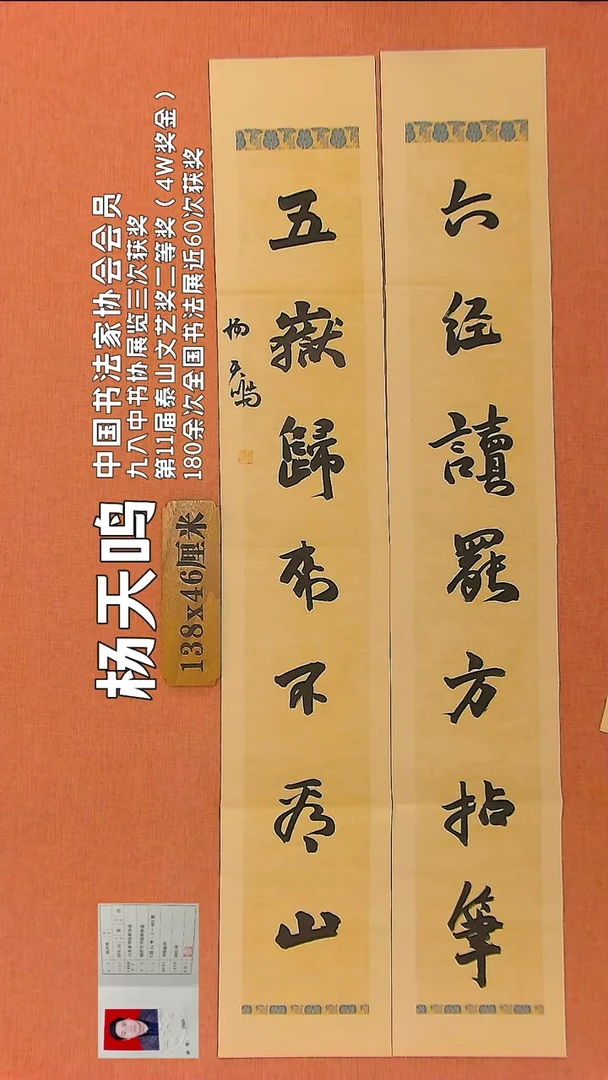 六经讀罷方拈筆
五嶽歸來不看山
杨天鸣
杨天鸣
中国书法家协会会员
九八中书协展览三次获奖
第11届泰山文艺奖二等奖（4W奖金）
180余次全国书法展近60次获奖
138x46厘米